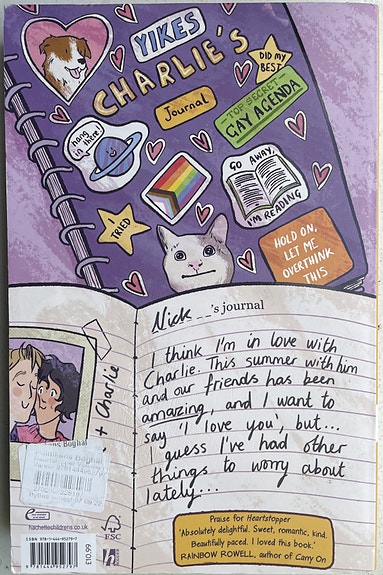 YIKES
CHARLIE'S
Journal
DID MY
BEST
TOP SECRET
GAY AGENDA
hang
in there!
GO AWAY,
I'M READING
I
TRIED
HOLD ON,
LET ME
OVERTHINK
THIS
Nick's journal
I think I'm in love with
Charlie. This summer with him
and our friends has been
amazing, and I want to
say 'I love you', but...
guess I've had other
things to worry about
lately...
+ Charlie
hachettechildrens.co.uk
FSC
ISBN 978-1-444-95279-7
9 781444 952797
£10.99
h
Praise for Heartstopper
'Absolutely delightful. Sweet, romantic, kind.
Beautifully paced. I loved this book.'
RAINBOW ROWELL, author of Carry On